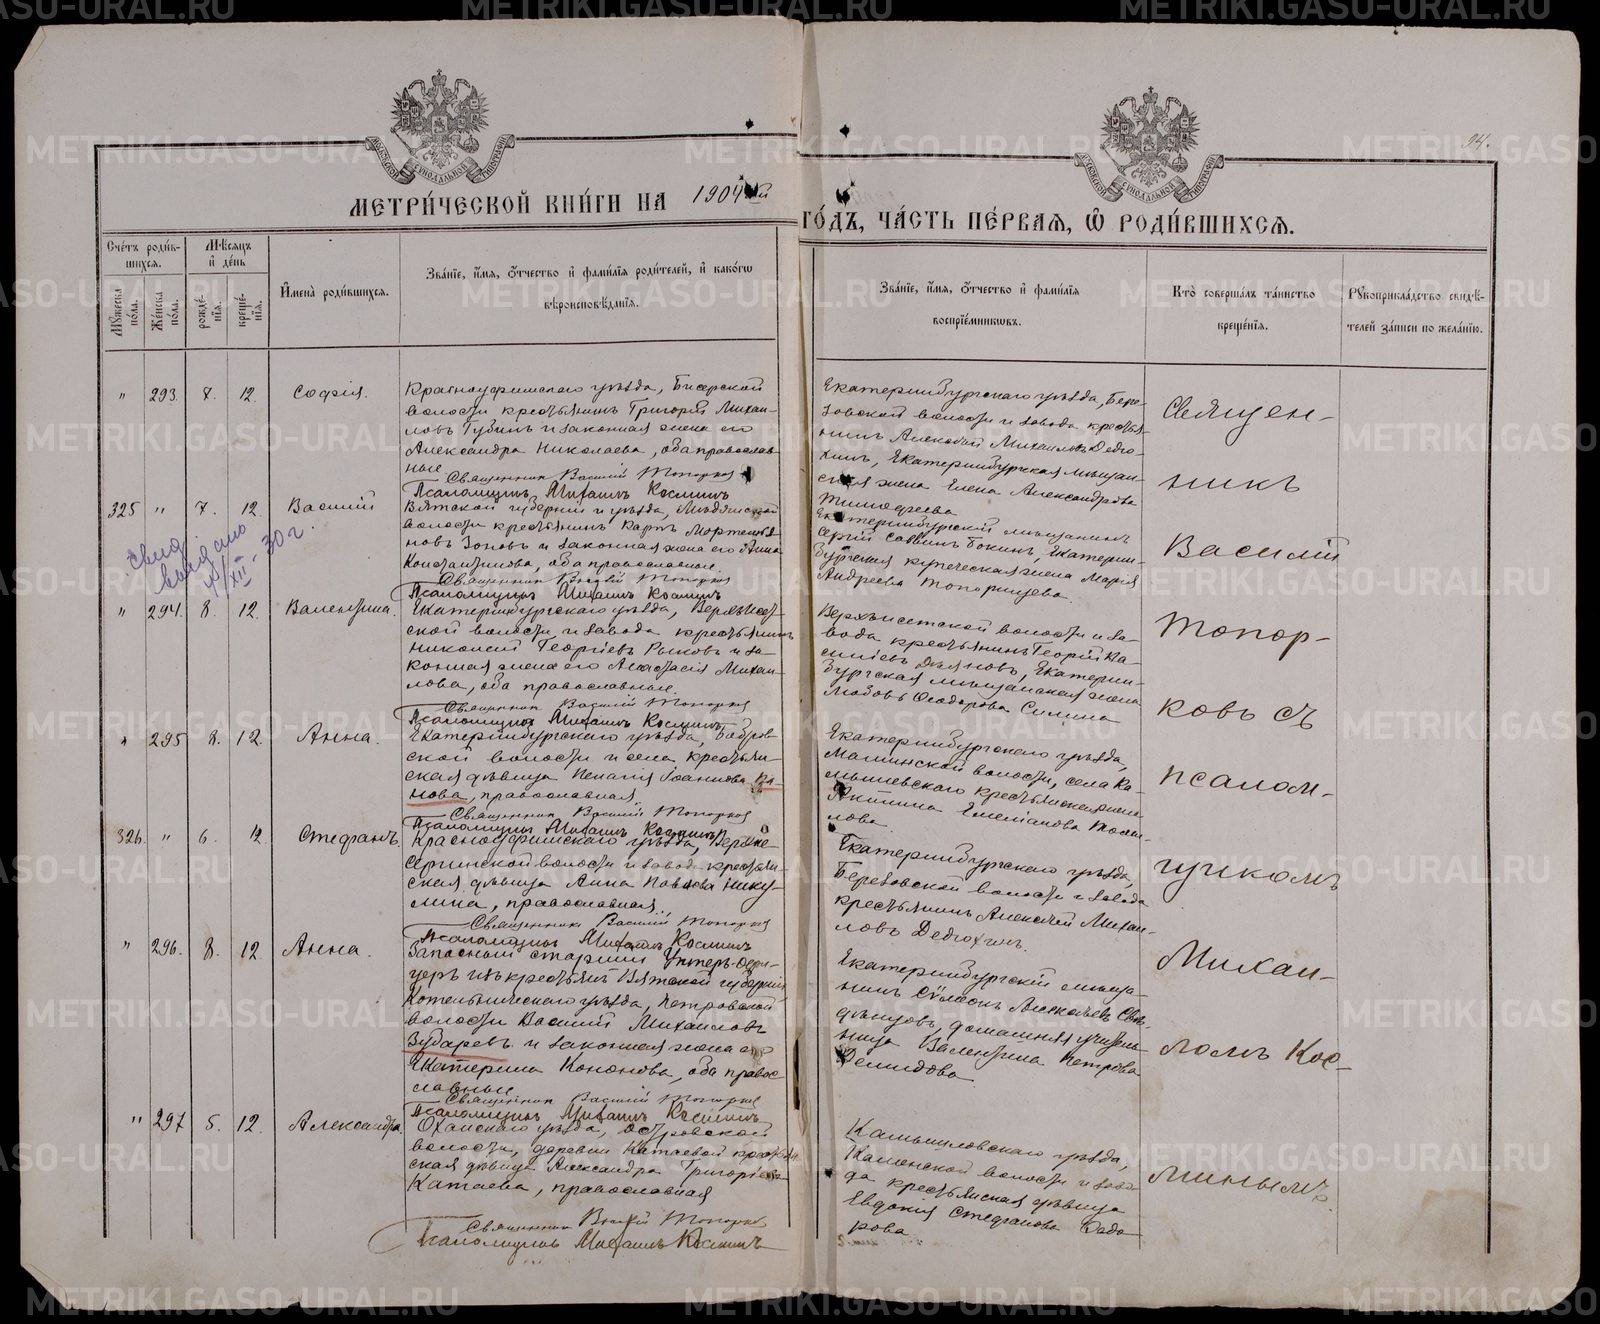 94.
МОСКОВСКОЙ СѴНОДАЛЬНОЙ ТИПОГРАФІИ
МОСКОВСКОЙ СѴНОДАЛЬНОЙ ТИПОГРАФІИ
МЕТРИ́ЧЕСКОЙ КНИ́ГИ НА 1904ый
ГО́ДЪ, ЧА́СТЬ ПЕ́РВАЯ, Ѡ РОДИ́ВШИХСЯ.
Сче́тъ роди́в-
шихся.
Мѣсяцъ
и де́нь
Мꙋжеска по́ла.
Же́нска по́ла.
рожде́-
нія.
креще́-
нія.
Имена̀ роди́вшихся.
Зва́ніе, и́мя, ѻ́тчество и фами́лія роди́телей, и како́гѡ
вѣроисповѣ́данія.
Зва́ніе, и́мя, ѻ́тчество и фами́лія
воспріе́мникѡвъ.
Кто̀ соверша́лъ та́инство
креще́нія.
Рꙋкоприкла́дство свидѣ́-
телей за́писи по жела́нію.
" 293. 7. 12. Софія.
Красноуфимскаго уѣзда, Бисерской
волости крестьянинъ Григорій Михаи-
ловъ Губинъ и законная жена его
Александра Николаева, оба православ-
ные
Священникъ Василій Топорковъ
Псаломщикъ Михаилъ Косминъ
Екатеринбургскаго уѣзда, Бере-
зовской волости и завода крестья-
нинъ Алексѣй Михаиловъ Дедю-
хинъ, Екатеринбургская мѣщан-
ская жена Елена Александрова
Тимофеева
325 " 7. 12. Василій
Вятской губерніи и уѣзда,
волости крестьянинъ Карпъ
Зоновъ и законная жена его Анна
Константинова, оба православные.
Священникъ Василій Топорковъ
Псаломщикъ Михаилъ Косминъ
Екатеринбургскій мѣщанинъ
Сергій Саввинъ Бокинъ, Екатерин-
бургская купеческая жена Марія
Андреева Топорищева.
XII 30 г.
" 294. 8. 12. Валентина.
Екатеринбургскаго уѣзда, Верхъисет-
ской волости и завода крестьянинъ
Николай Георгіевъ Рыковъ и за-
конная жена его Анастасія Михаи-
лова, оба православные.
Священникъ Василій Топорковъ
Псаломщикъ Михаилъ Косминъ
Верхъисетской волости и за-
вода крестьянинъ Георгій Ва-
силіевъ Деяновъ, Екатерин-
бургская мѣщанская жена
Любовь Ѳеодорова Силина
" 295 8. 12. Анна.
Екатеринбургскаго уѣзда, Бобров-
ской волости и села крестьян-
ская дѣвица Пелагія Іоаннова Па-
нова, православная
Священникъ Василій Топорковъ
Псаломщикъ Михаилъ Косминъ
Екатеринбургскаго уѣзда,
Маминской волости, села Ка-
мышевскаго крестьянская жена
Акилина Емеліанова
лова
326. " 6. 12 Стефанъ.
Красноуфимскаго уѣзда, Верхне-
Сергинской волости и завода крестьян-
ская дѣвица Анна Павлова Нику-
лина, православная
Священникъ Василій Топорковъ
Псаломщикъ Михаилъ Косминъ
Екатеринбургскаго уѣзда,
Березовской волости и завода
крестьянинъ Алексѣй Михаи-
ловъ Дедюхинъ.
" 296. 8. 12 Анна.
Запасный старшій унтеръ-офи-
церъ изъ крестьянъ Вятской губерніи
Котельническаго уѣзда, Петровской
волости Василій Михаиловъ
Зубаревъ и законная жена его
Екатерина Кононова, оба право-
славные
Священникъ Василій Топорковъ
Псаломщикъ Михаилъ Косминъ
Екатеринбургскій мѣща-
нинъ Сѵмеонъ Алексѣевъ
домашняя учитель-
ница Валентина Петрова
Демидова.
" 297 5. 12. Александра
Оханскаго уѣзда, Островской
волости, деревни Катаевой крестьян-
ская дѣвица Александра Григоріева
Катаева, православная
Священникъ Василій Топорковъ
Псаломщикъ Михаилъ Косминъ
Камышловскаго уѣзда,
Каменской волости и заво-
да крестьянская дѣвица
Евдокія Стефанова
рова
Священ-
никъ
Василій
Топор-
ковъ съ
псалом-
щикомъ
Михаи-
ломъ Кос-
минымъ.
METRIKI.GASO-URAL.RU